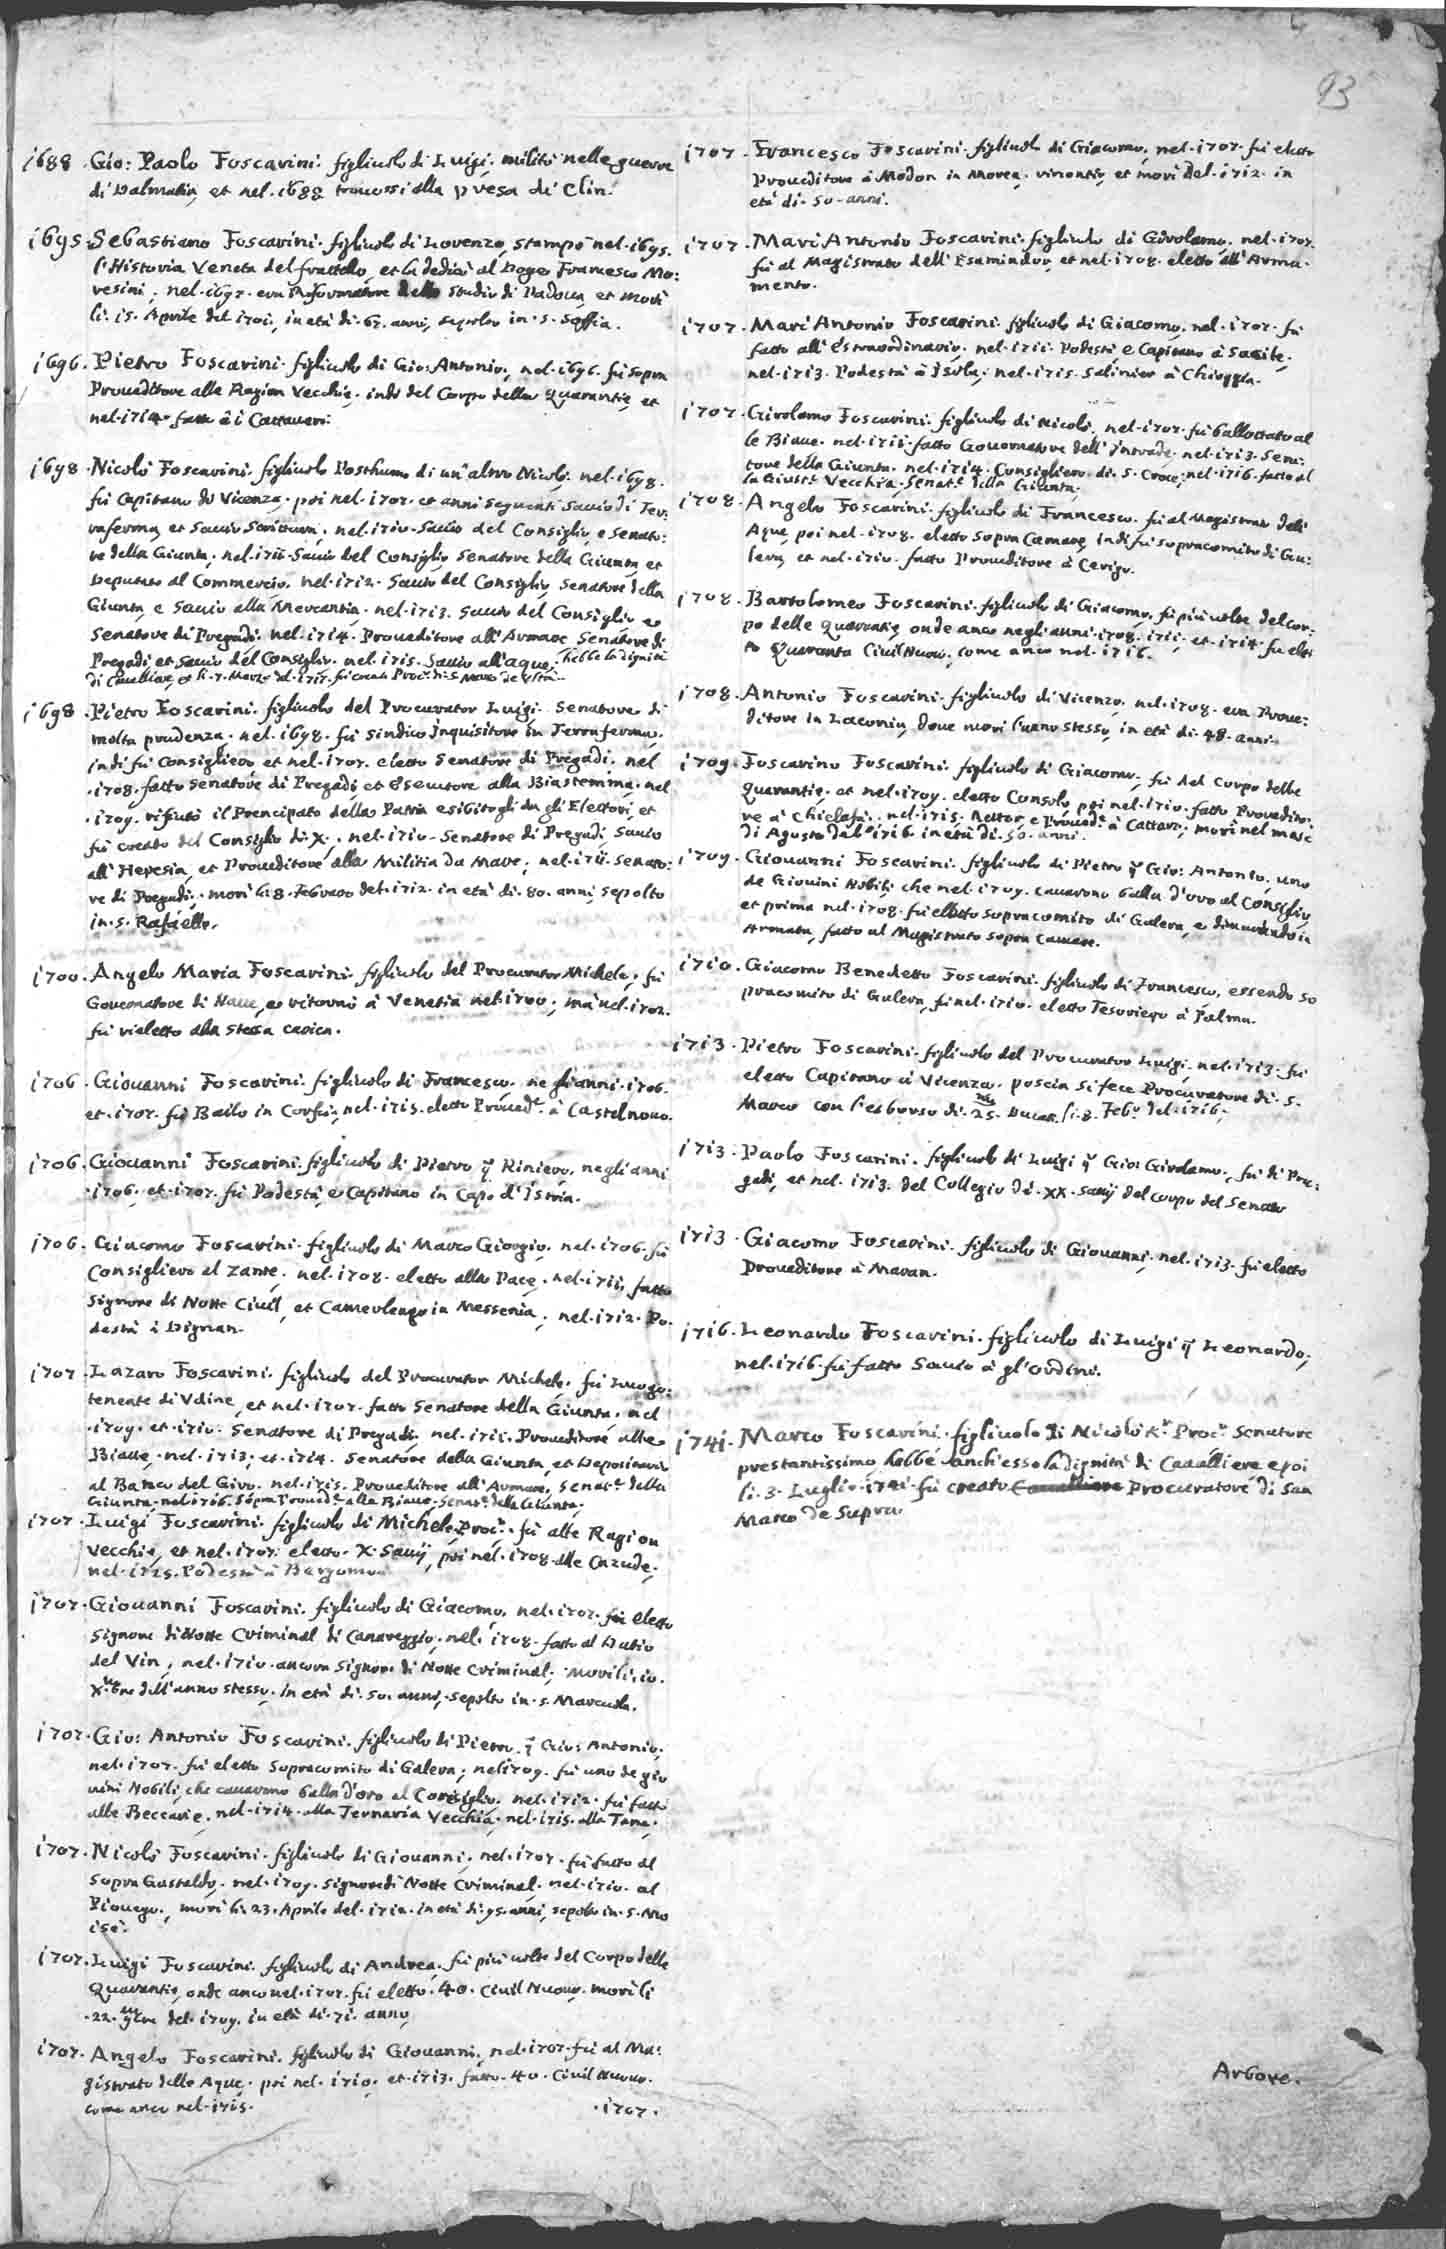 93
1688. Gio: Paolo Foscarini. figliuolo di Luigi. militò nelle guerre
di Dalmatia, et nel. 1688 trovossi alla presa di Clin.
1695. Sebastiano Foscarini. figliuolo di Lorenzo, stampò nel. 1695.
l'Historia Veneta del fratello, et la dedicò al Doge Francesco Mo:
resini; nel. 1697. era Reformatore dello Studio di Padoua, et morì
li. 15. Aprile del 1701, in età di. 67. anni, sepolto in. S. Soffia.
1696. Pietro Foscarini. figliuolo di Gio: Antonio, nel. 1696. fù sopra
Proueditore alle Ragion Vecchie, indi del Corpo delle Quarantie, et
nel. 1714. fatto à i Cattaueri.
1698. Nicolò Foscarini. figliuolo Posthumo di un'altro Nicolò, nel. 1698.
fù Capitano di Vicenza, poi nel. 1707. et anni seguenti Sauio di Ter:
raferma, et Sauio Scrittura. nel. 1710. Sauio del Consiglio, e Senato:
re della Giunta; nel. 1711. Sauio del Consiglio, Senatore della Giunta, et
Deputato al Commercio. nel. 1712. Sauio del Consiglio, Senatore della
Giunta, e Sauio alla Mercantia. nel. 1713. Sauio del Consiglio, e
Senatore di Pregadi. nel. 1714. Proueditore all'Armare, Senatore di
Pregadi et Sauio del Consiglio. nel. 1715. Sauio all'aque; hebbe la dignità
di Caualliere, et li. 7. Marzo del. 1717. fù creato Procr. di S. Marco de
1698. Pietro Foscarini. figliuolo del Procurator Luigi. Senatore di
molta prudenza. nel. 1698. fù Sindico Inquisitore in Terraferma,
indi fù Consigliero et nel. 1707. eletto Senatore di Pregadi. nel
.1708. fatto Senatore di Pregadi et Esecutore alla Biastemma. nel
.1709. rifiutò il Prencipato della Patria esibitogli da gli Elettori, et
fù creato del Consiglio di. X., nel. 1710. Senatore di Pregadi, Sauio
all'Heresia, et Proueditore alla Militia da Mare; nel. 1711. Senato:
re di Pregadi. morì li 8. Febraro del. 1712. in età di. 80. anni, sepolto
in. S. Rafaello.
1700. Angelo Maria Foscarini figliuolo del Procurator Michele, fù
Gouernatore di Naue, e ritornò à Venetia nel. 1700; mà nel. 1702.
fù rieletto alla stessa carica.
1706. Giouanni Foscarini. figliuolo di Francesco. ne gli anni. 1706.
et. 1707. fù Bailo in Corfù; nel. 1715. eletto Proued.e à Castelnouo.
1706. Giouanni Foscarini. figliuolo di Pietro q Rinieri. negli anni
.1706. et. 1707. fù Podestà, e Capitano in Capo d'Istria.
1706. Giacomo Foscarini. figliuolo di Marco Giorgio. nel. 1706. fù
Consigliero al Zante. nel. 1708. eletto alla Pace. nel. 1711. fatto
Signore di Notte Ciuil, et Camerlengo in Messenia; nel. 1712. Po.
destà à Dignan.
1707. Lazaro Foscarini. figliuolo del Procurator Michele. fù Luogo:
tenente di Vdine, et nel. 1707. fatto Senatore della Giunta. nel
.1709. et. 1710. Senatore di Pregadi. nel. 1711. Proueditore alle
Biaue. nel. 1713. et. 1714. Senatore della Giunta, et Depositario
al Banco del Giro. nel. 1715. Proueditore all'Armare, Senat.e della
Giunta. nel 1716. Sopra Proued.e alla Biaue. Senat.e della Giunta.
1707. Luigi Foscarini. figliuolo di Michele Procr. fù alle Ragion
Vecchie, et nel. 1707. eletto. X. Sauij, poi nel. 1708. alle Cazude,
nel. 1715. Podestà à Bergomo
1707. Giouanni Foscarini. figliuolo di Giacomo. nel. 1707. fù eletto
Signore di Notte Criminal di Canareggio; nel. 1708. fatto al Datio
del Vin; nel. 1710. ancora Signore di Notte Criminal; morì li. 10.
Xmbre dell'anno stesso, in età di. 50. anni, sepolto in. S. Marcuola.
1707. Gio: Antonio Foscarini. figliuolo di Pietro q Gio: Antonio.
nel. 1707. fù eletto Sopracomito di Galera; nel 1709. fù uno de gio
uini Nobili, che cauarono balla d'oro al Consiglio. nel. 1712. fù fatto
alle Beccarie. nel. 1714. alla Ternaria Vecchia. nel. 1715. alla Tana.
1707. Nicolò Foscarini. figliuolo di Giouanni, nel. 1707. fù fatto al
Sopra Gastaldo. nel. 1709. Signore di Notte Criminal. nel. 1710. al
Piouego, morì li. 23. Aprile del. 1712. in età di. 95. anni, sepolto in. S. Mo
isè.
1707. Luigi Foscarini. figliuolo di Andrea. fù più uolte del Corpo delle
Quarantie, onde anco nel. 1707. fù eletto. 40. Ciuil Nuouo. morì li
.22. 9mbre del. 1709. in età di. 71. anno,
1707. Angelo Foscarini. figliuolo di Giouanni, nel. 1707. fù al Ma:
gistrato delle Aque. poi nel. 1710. et. 1713. fatto. 40. Ciuil Nuouo.
come anco nel. 1715.
.1707.
1707. Francesco Foscarini. figliuolo di Giacomo, nel. 1707. fù eletto
Proueditore à Modon in Morea. et morì del. 1712. in
età di. 50. anni.
1707. Marc'Antonio Foscarini. figliuolo di Girolamo. nel. 1707.
fù al Magistrato dell'Esaminador, et nel. 1708. eletto all'Arma.
mento.
1707. Marc'Antonio Foscarini. figliuolo di Giacomo. nel. 1707. fù
fatto all'Estraordinario. nel. 1711. Podestà e Capitano à Sacile.
nel. 1713. Podestà à Isola; nel. 1715. Salinier à Chioggia.
1707. Girolamo Foscarini. figliuolo di Nicolò, nel. 1707. fù ballottato al
le Biaue. nel. 1711. fatto Gouernatore dell'Intrade, nel. 1713. Sena:
tore della Giunta. nel. 1714. Consigliero di. S. Croce; nel. 1716. fatto al
la Giust.a Vecchia, Senat.e della Giunta.
1708. Angelo Foscarini. figliuolo di Francesco. fù al Magistrato dell'
Aque, poi nel. 1708. eletto sopra Camere, indi fù sopracomito di Ga:
lera, et nel. 1710. fatto Proueditore à Cerigo.
1708. Bartolomeo Foscarini. figliuolo di Giacomo, fù più uolte del cor:
po delle Quarantie, onde anco negli anni. 1708. 1711. et. 1714. fù elet
to Quaranta Ciuil Nuouo, come anco nel. 1716.
1708. Antonio Foscarini. figliuolo di Vicenzo. nel. 1708. era Proue:
ditore in Laconia, doue morì l'anno stesso, in età di. 48. anni.
1709. Foscarino Foscarini. figliuolo di Giacomo, fù del Corpo delle
Quarantie. et nel. 1709. eletto Consolo, poi nel. 1710. fatto Proueditor:
re à Chielefa. nel. 1715. Rettor, e Proued.e à Cattaro; morì nel mese
di Agosto del 1716 in età di. 50. anni.
1709. Giouanni Foscarini. figliuolo di Pietro q Gio: Antonio, uno
de Giouini Nobili che nel. 1709. cauarono balla d'oro al Consiglio,
et prima nel. 1708. fù eletto sopracomito di Galera, e dimorando in
Armata, fatto al Magistrato sopra Camere.
1710. Giacomo Benedetto Foscarini. figliuolo di Francesco, essendo so
pracomito di Galera, fù nel. 1710. eletto Tesoriero à Palma.
1713. Pietro Foscarini. figliuolo del Procurator Luigi. nel. 1713. fù
eletto Capitano à Vicenza. poscia si fece Procuratore di. S.
Marco con l'esborso di. 25. Ducati. li. 8. Febr. del. 1716.
1713. Paolo Foscarini. figliuolo di Luigi q Gio: Girolamo, fù di Pre:
gadi, et nel. 1713. del Collegio di. XX. Sauij del corpo del Senato
1713. Giacomo Foscarini. figliuolo di Giouanni, nel. 1713. fù eletto
Proueditore à Maran.
1716. Leonardo Foscarini. figliuolo di Luigi q Leonardo,
nel. 1716. fù fatto Sauio à gl'ordini.
1741. Marco Foscarini. figliuolo di Nicolò Kr. Procr. Senatore
prestantissimo, hebbe anch'esso la dignità di Caualliere e poi
li. 3. Luglio. 1741. fù creato Caualliere Procuratore di San
Marco de Supra
Arbore.